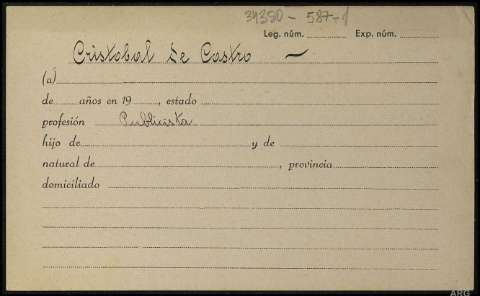 34380 - 587-1
Leg. núm. Exp. núm.
Cristobal de Castro
(a)
de años en 19 , estado
profesión Publicista
hijo de y de
natural de , provincia
domiciliado
ARG